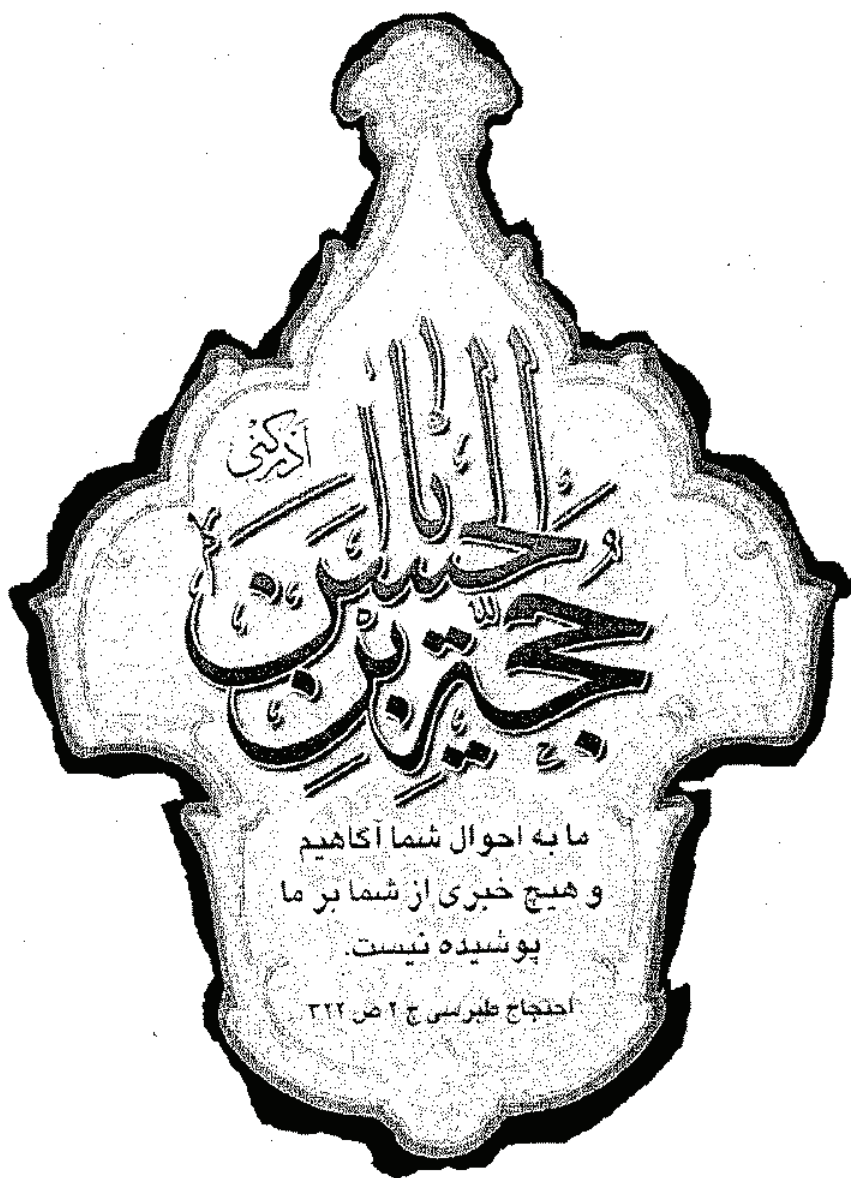 یا حجة بن الحسن
أدركنی
ما به احوال شما آگاهیم
و هیچ خبری از شما بر ما
پوشیده نیست.
احتجاج طبرسی ج ۲ ص ۳۲۲